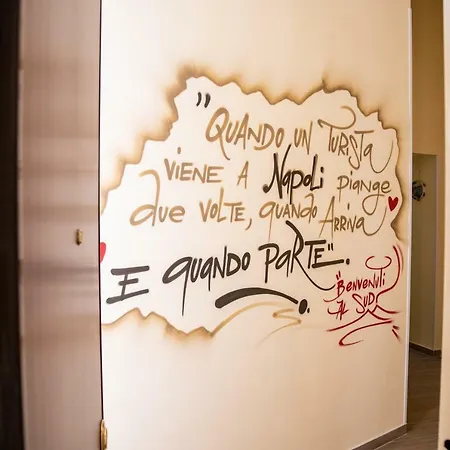 "QUANDO UN TURISTA
VIENE A NAPOLI PIANGE
DUE VOLTE, QUANDO ARRIVA
E QUANDO PARTE".
"BENVENUTI
AL SUD"